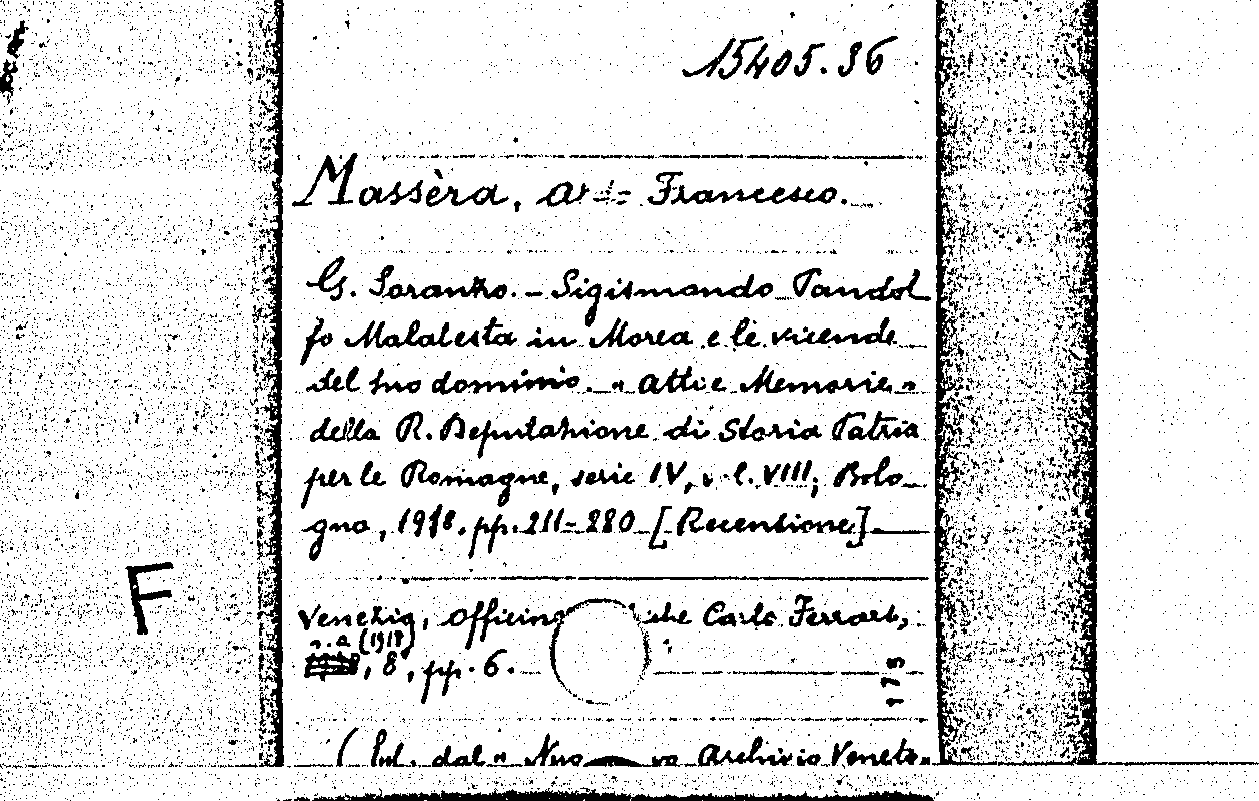 15405.36
Massèra, Francesco.
G. Soranzo. - Sigismondo Pandol
fo Malatesta in Morea e le vicende
del suo dominio. - « Atti e Memorie »
della R. Deputazione di Storia Patria
per le Romagne, serie IV, v l. VIII; Bolo-
gna, 1918. pp. 211-280 [Recensione].
F
Venezia, Officine Carlo Ferrari,
s. a (1919)
, 8°, pp. 6.
175
( dal « Nuo vo Archivio Veneto »